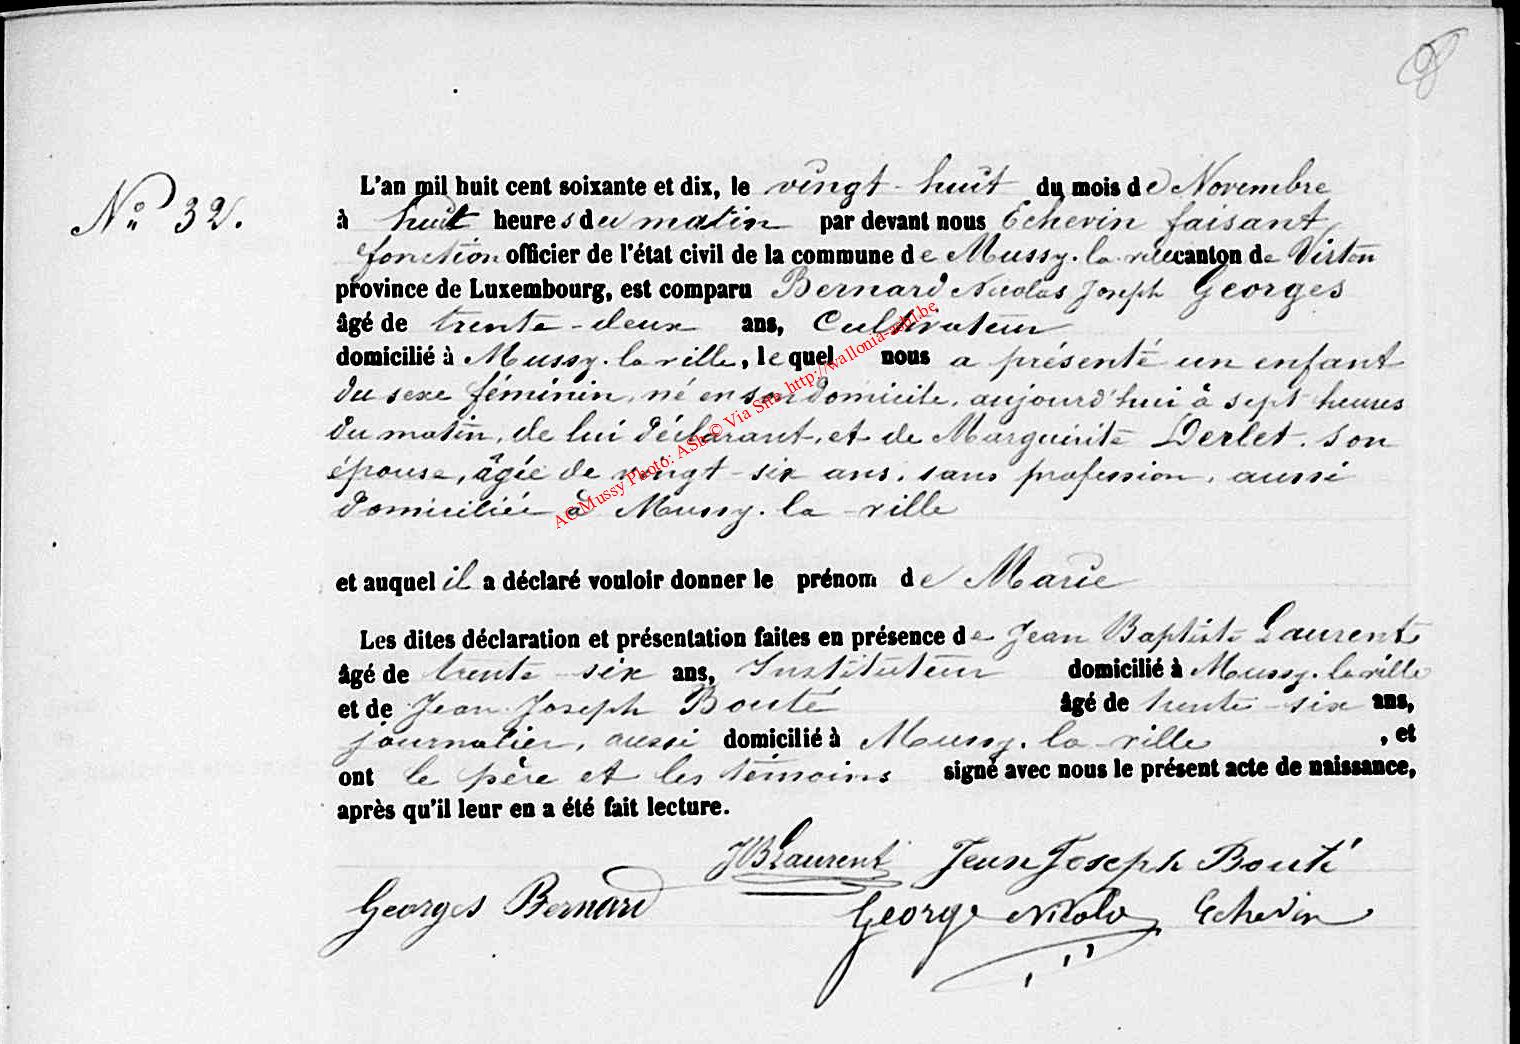 8
N° 32.
L'an mil huit cent soixante et dix, le vingt-huit du mois de Novembre
à huit heures du matin par devant nous Echevin faisant
fonction officier de l'état civil de la commune de Mussy-la-ville canton de Virton
province de Luxembourg, est comparu Bernard Nicolas Joseph Georges
âgé de trente-deux ans, Cultivateur
domicilié à Mussy-la-ville, lequel nous a présenté un enfant
du sexe féminin, né en son domicile, aujourd'hui à sept heures
du matin, de lui déclarant, et de Marguérite Derlet, son
épouse, âgée de vingt-six ans, sans profession, aussi
domiciliée à Mussy-la-ville
et auquel il a déclaré vouloir donner le prénom de Marie
Les dites déclaration et présentation faites en présence de Jean Baptiste Laurent
âgé de trente-six ans, Instituteur domicilié à Mussy-la-ville
et de Jean Joseph Bouté âgé de trente-six ans,
journalier, aussi domicilié à Mussy-la-ville, et
ont le père et les témoins signé avec nous le présent acte de naissance,
après qu'il leur en a été fait lecture.
JBLaurent Jean Joseph Bouté
Georges Bernard George Nicolas Echevin
AC Mussy Photo: ASh © Via Site http://wallonia-asbl.be